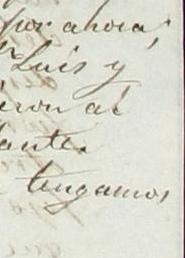 por ahora;
Luis y
eron al
ante.
tengamos